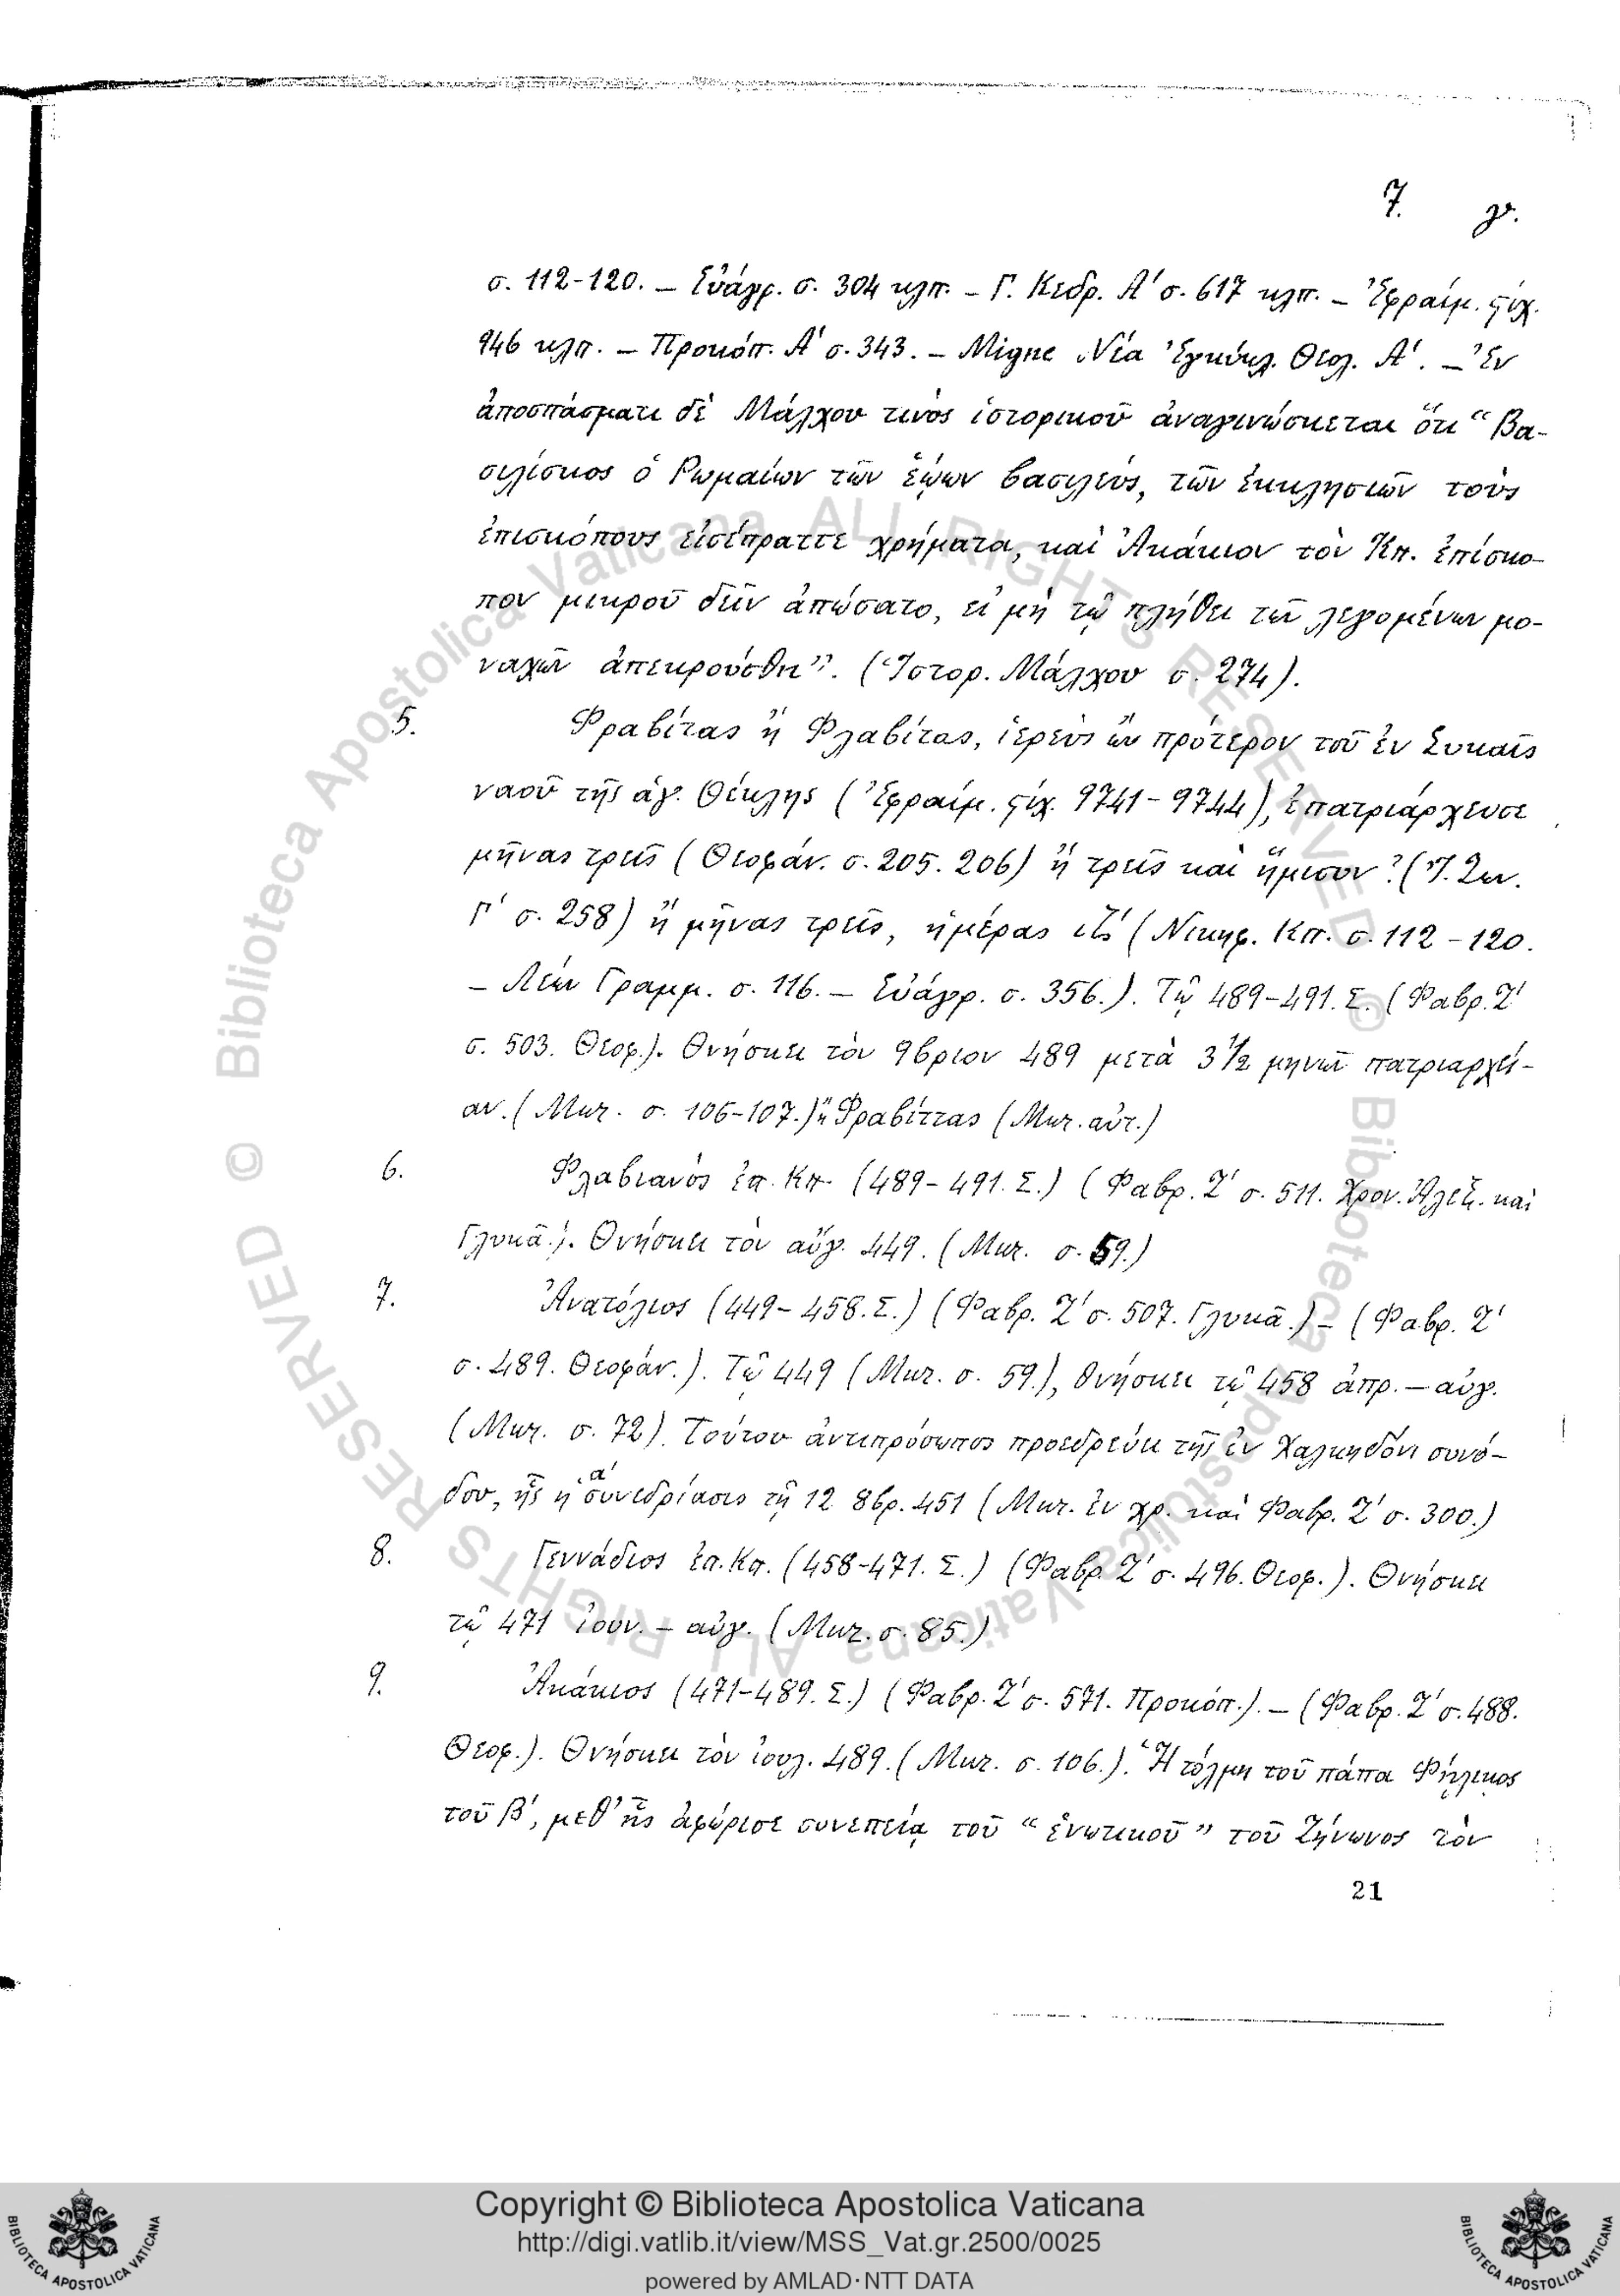 7. γ.
σ. 112-120. – Εὐάγρ. σ. 304 κλπ. – Γ. Κεδρ. Α' σ. 617 κλπ. – Ἐφραίμ. ϛίχ.
946 κλπ. – Προκόπ. Α' σ. 343. – Migne Νέα Ἐγκύκλ. Θεολ. Α'. – Ἐν
ἀποσπάσματι δὲ Μάλχου τινὸς ἱστορικοῦ ἀναγινώσκεται ὅτι “Βα-
σιλίσκος ὁ Ρωμαίων τῶν ἑῴων βασιλεύς, τῶν ἐκκλησιῶν τοὺς
ἐπισκόπους εἰσέπραττε χρήματα, καὶ Ἀκάκιον τὸν Κπ. ἐπίσκο-
πον μικροῦ δεῖν ἀπώσατο, εἰ μὴ τῷ πλήθει τῶν λεγομένων μο-
ναχῶν ἀπεκρούσθη”. (Ἱστορ. Μάλχου σ. 274).
5. Φραβίτας ἢ Φλαβίτας, ἱερεὺς ὢν πρότερον τοῦ ἐν Συκαῖς
ναοῦ τῆς ἁγ. Θέκλης (Ἐφραίμ. ϛίχ. 9741-9744), ἐπατριάρχευσε
μῆνας τρεῖς (Θεοφάν. σ. 205. 206) ἢ τρεῖς καὶ ἥμισυν? (Ἰ. Ζων.
Γ' σ. 258) ἢ μῆνας τρεῖς, ἡμέρας ιζ' (Νικηφ. Κπ. σ. 112-120.
– Λέων Γραμμ. σ. 116. – Εὐάγρ. σ. 356.). Τῷ 489-491. Σ. (Φαβρ. Ζ'
σ. 503. Θεοφ.). Θνήσκει τὸν 9βριον 489 μετὰ 3 1/2 μηνῶν πατριαρχεί-
αν. (Μυτ. σ. 106-107.) ἢ Φραβίττας (Μυτ. αὐτ.)
6. Φλαβιανὸς ἐπ. Κπ. (489-491. Σ.) (Φαβρ. Ζ' σ. 511. Χρον. Ἀλεξ. καὶ
Γλυκᾶ.). Θνήσκει τὸν αὔγ. 449. (Μυτ. σ. 59.)
7. Ἀνατόλιος (449-458. Σ.) (Φαβρ. Ζ' σ. 507. Γλυκᾶ.) – (Φαβρ. Ζ'
σ. 489. Θεοφάν.). Τῷ 449 (Μυτ. σ. 59.), θνήσκει τῷ 458 ἀπρ. – αὐγ.
(Μυτ. σ. 72). Τούτου ἀντιπρόσωπος προεδρεύει τῆς ἐν Χαλκηδόνι συνό-
δου, ἧς ἡ α' συνεδρίασις τῇ 12 8βρ. 451 (Μυτ. ἐν χρ. καὶ Φαβρ. Ζ' σ. 300.)
8. Γεννάδιος ἐπ. Κπ. (458-471. Σ.) (Φαβρ. Ζ' σ. 496. Θεοφ.). Θνήσκει
τῷ 471 ἰουν. – αὐγ. (Μυτ. σ. 85.)
9. Ἀκάκιος (471-489. Σ.) (Φαβρ. Ζ' σ. 571. Προκόπ.). – (Φαβρ. Ζ' σ. 488.
Θεοφ.). Θνήσκει τὸν ἰουλ. 489. (Μυτ. σ. 106.). Ἡ τόλμη τοῦ πάπα Φήλικος
τοῦ Β', μεθ' ἧς ἀφώρισε συνεπείᾳ τοῦ “ἑνωτικοῦ” τοῦ Ζήνωνος τὸν
21
© Biblioteca Apostolica Vaticana ALL RIGHTS RESERVED
© Biblioteca Apostolica Vaticana ALL RIGHTS RESERVED
Copyright © Biblioteca Apostolica Vaticana
http://digi.vatlib.it/view/MSS_Vat.gr.2500/0025
powered by AMLAD·NTT DATA
BIBLIOTECA APOSTOLICA VATICANA
BIBLIOTECA APOSTOLICA VATICANA